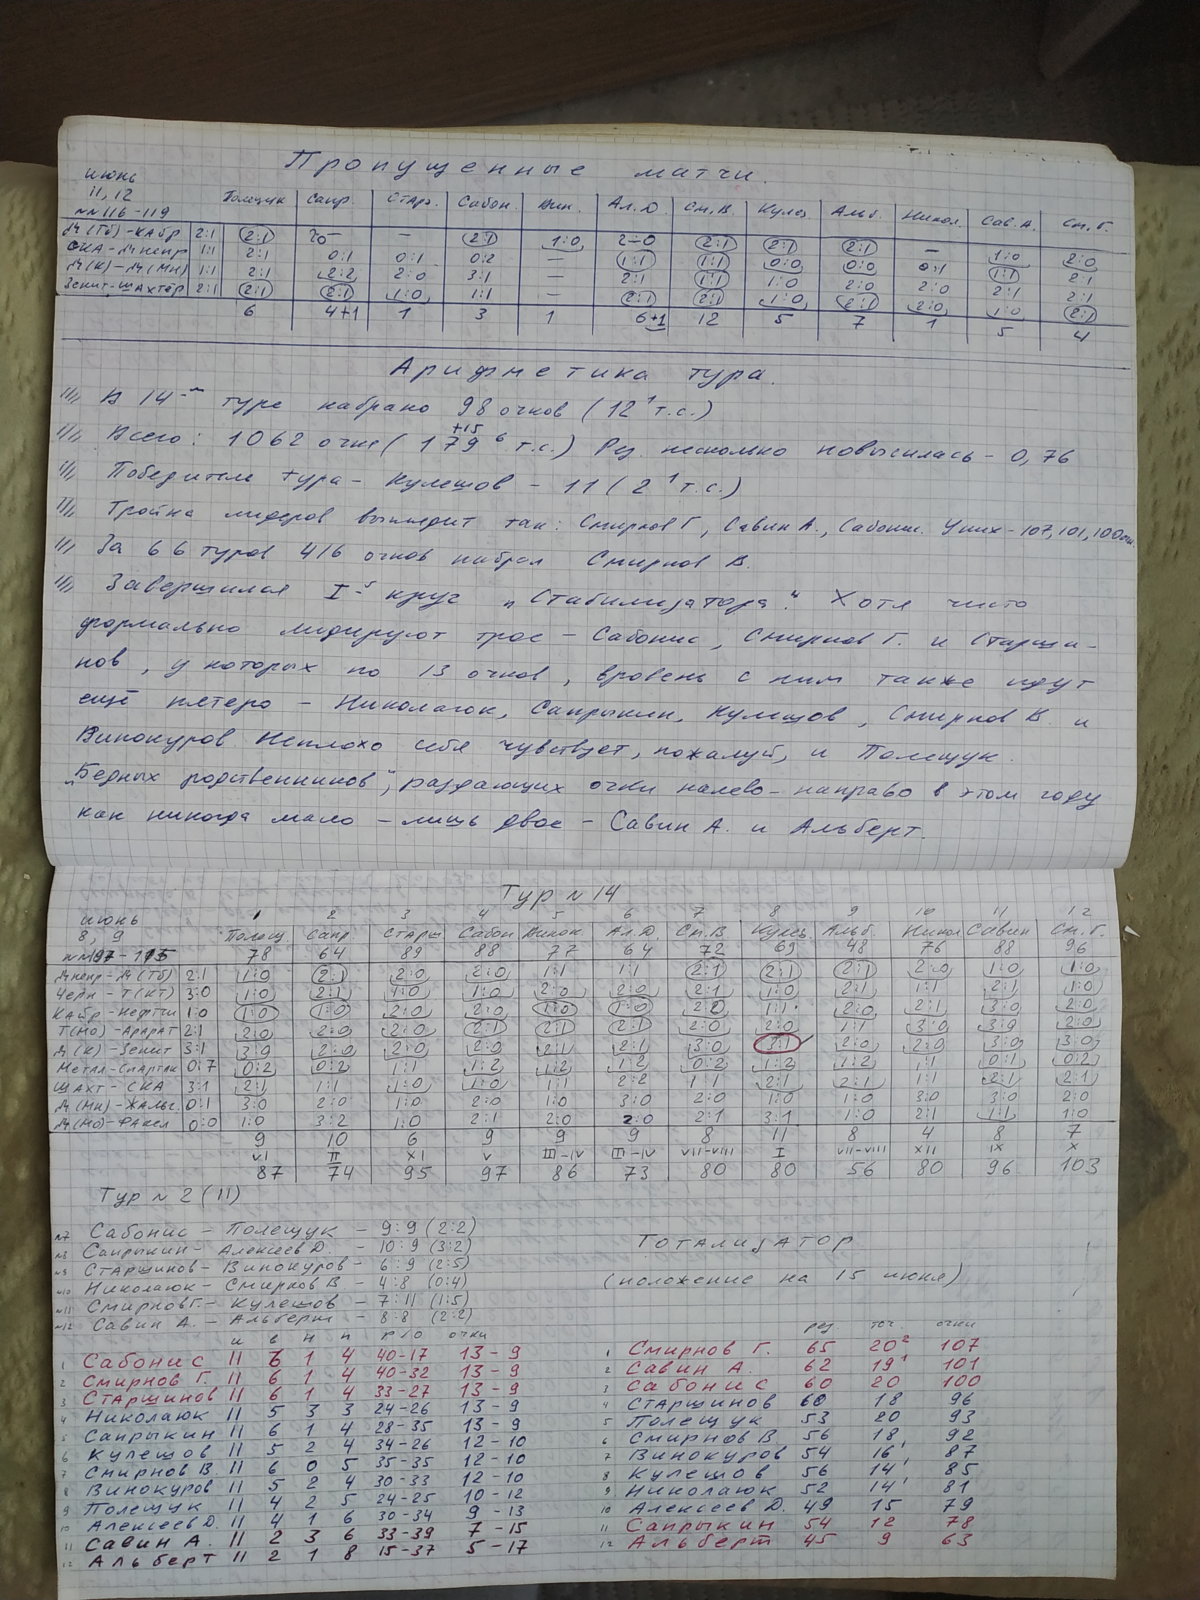 Пропущенные матчи.
июнь
11, 12
№№116-119
Полещук Сапр. Старш. Сабон. Вин. Ал.Д. См.В. Кулеш. Альб. Никол. Сав.А. См.Г.
Д(Тб)-Кабр 2:1 2:1 — 2:1 1:0 2-0 2:1 2:1 2:1 — 1:0 2:0
СКА-Днепр 1:1 2:1 0:1 0:1 0:2 — 1:1 1:1 0:0 0:0 0:1 1:1 2:1
Д(К)-Д(Мн) 1:1 2:1 2:2 2:0 3:1 — 2:1 1:1 1:0 2:0 2:0 2:1 2:1
Зенит-Шахтёр 2:1 2:1 2:1 1:0 1:1 — 2:1 2:1 1:0 2:1 2:0 1:0 2:1
6 4+1 1 3 1 6+1 12 5 7 1 5 4
Арифметика тура.
В 14-м туре набрано 98 очков (12 1 т.с.)
+15
Всего: 1062 очка (179 6 т.с.) Рез. несколько повысилась - 0,76
Победитель тура - Кулешов - 11 (2 1 т.с.)
Тройка лидеров выглядит так: Смирнов Г, Савин А., Сабонис. У них - 107, 101, 100 оч.
За 66 туров 416 очков набрал Смирнов В.
Завершился I-й круг "Стабилизатора". Хотя чисто
формально лидируют трое - Сабонис, Смирнов Г. и Старши-
нов, у которых по 13 очков, вровень с ним также идут
ещё пятеро - Николаюк, Сапрыкин, Кулешов, Смирнов В. и
Винокуров. Неплохо себя чувствует, пожалуй, и Полещук.
"Бедных родственников", раздающих очки налево-направо в этом году
как никогда мало - лишь двое - Савин А. и Альберт.
Тур №14
июнь 1 2 3 4 5 6 7 8 9 10 11 12
8, 9 Полещ Сапр. Старш Сабон Винок Ал.Д. См.В Кулеш Альб. Никол Савин См.Г.
78 64 89 88 77 64 72 69 48 76 88 96
Днепр-Д(Тб) 2:1 1:0 2:1 2:0 2:0 1:1 1:1 2:1 2:1 2:1 2:0 1:0 1:0
Черн-Т(КТ) 3:0 1:0 2:1 1:0 1:0 2:0 2:0 2:1 1:0 2:1 1:1 2:1 1:0
Кабр-Нефтчи 1:0 1:0 1:0 2:0 2:0 1:0 1:0 2:0 1:1 2:0 2:1 3:0 2:0
Т(Мо)-Арарат 2:1 2:0 2:0 2:0 2:1 2:1 2:1 2:0 2:0 1:1 3:0 3:0 2:0
Д(К)-Зенит 3:1 3:0 2:0 2:0 2:0 2:1 2:1 3:0 3:1 2:0 2:0 3:0 3:0
Металл-Спартак 0:7 0:2 0:2 1:1 1:2 1:2 1:2 0:2 1:2 1:2 1:1 0:1 0:2
Шахт-СКА 3:1 2:1 1:1 1:0 1:0 1:1 2:2 1:1 2:1 2:1 1:1 2:1 2:1
Д(Мн)-Жальг. 0:1 3:0 2:0 1:0 2:0 1:0 3:0 2:0 1:0 1:0 3:0 3:0 2:0
Д(Мо)-Факел 0:0 1:0 3:2 1:0 2:1 2:0 2:0 2:1 3:1 1:0 2:1 1:1 1:0
9 10 6 9 9 9 8 11 8 4 8 7
VI II XI V III-IV III-IV VII-VIII I VII-VIII XII IX X
87 74 95 97 86 73 80 80 56 80 96 103
Тур №2 (11)
№7 Сабонис - Полещук - 9:9 (2:2)
№8 Сапрыкин - Алексеев Д. - 10:9 (3:2)
№9 Старшинов - Винокуров - 6:9 (2:5)
№10 Николаюк - Смирнов В - 4:8 (0:4)
№11 Смирнов Г. - Кулешов - 7:11 (1:5)
№12 Савин А. - Альберт - 8:8 (2:2)
и в н п р/о очки
1 Сабонис 11 6 1 4 40-17 13-9
2 Смирнов Г. 11 6 1 4 40-32 13-9
3 Старшинов 11 6 1 4 33-27 13-9
4 Николаюк 11 5 3 3 24-26 13-9
5 Сапрыкин 11 6 1 4 28-35 13-9
6 Кулешов 11 5 2 4 34-26 12-10
7 Смирнов В. 11 6 0 5 35-35 12-10
8 Винокуров 11 5 2 4 30-33 12-10
9 Полещук 11 4 2 5 24-25 10-12
10 Алексеев Д. 11 4 1 6 30-34 9-13
11 Савин А. 11 2 3 6 33-39 7-15
12 Альберт 11 2 1 8 15-37 5-17
Тотализатор
(положение на 15 июня)
рез. точ. очки
1 Смирнов Г. 65 20 2 107
2 Савин А. 62 19 1 101
3 Сабонис 60 20 100
4 Старшинов 60 18 96
5 Полещук 53 20 93
6 Смирнов В 56 18 92
7 Винокуров 54 16 1 87
8 Кулешов 56 14 1 85
9 Николаюк 52 14 1 81
10 Алексеев Д. 49 15 79
11 Сапрыкин 54 12 78
12 Альберт 45 9 63